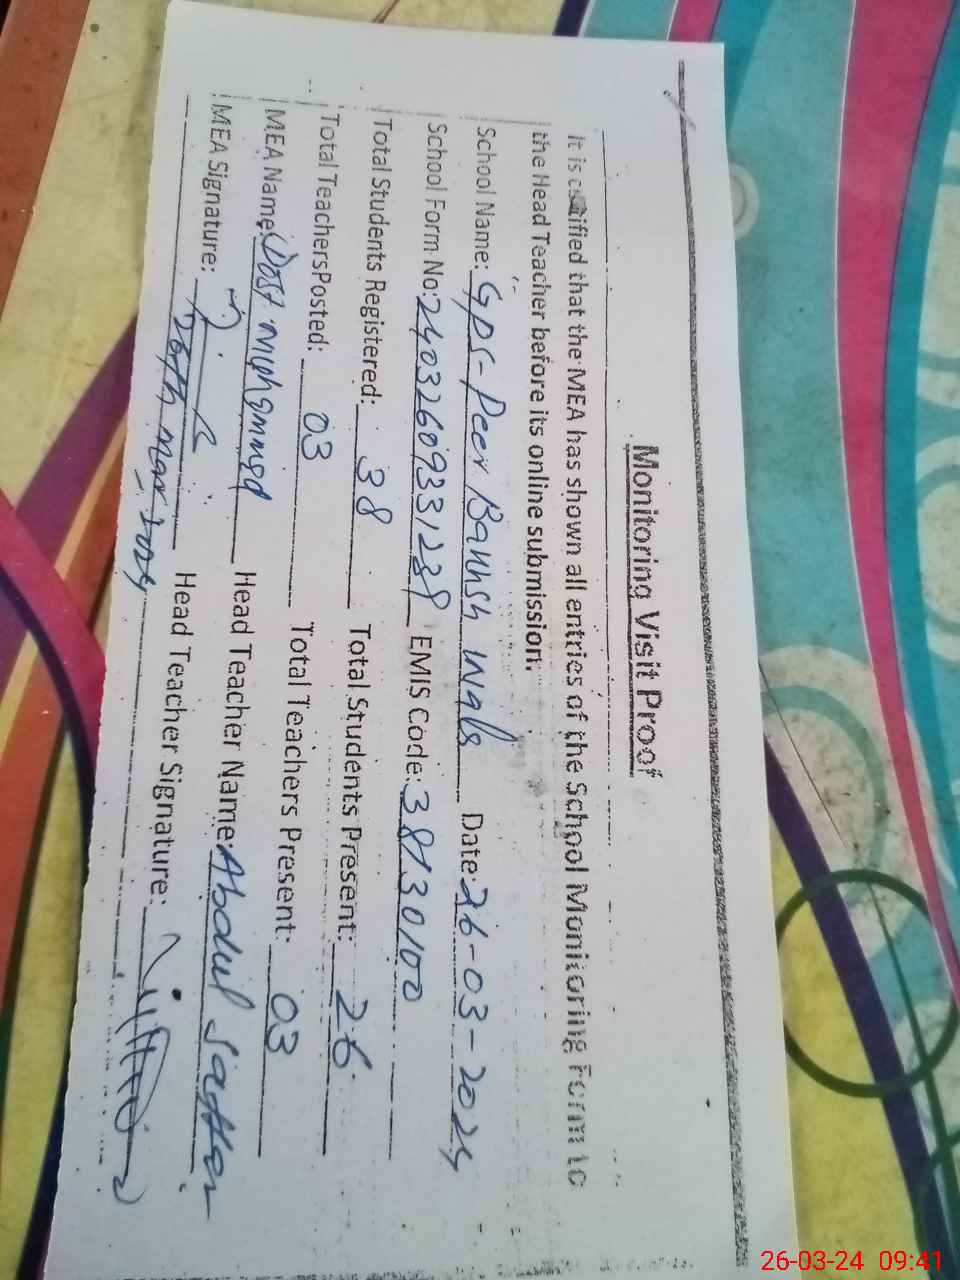 Monitoring Visit Proof
It is certified that the MEA has shown all entries of the School Monitoring Form to
the Head Teacher before its online submission.
School Name: GPS-Peer Banhsh Wqls Date: 26-03-2024
School Form No: 2403260933123 EMIS Code: 38130100
Total Students Registered: 38 Total Students Present: 26
Total Teachers Posted: 03 Total Teachers Present: 03
MEA Name: Dost Muhammad Head Teacher Name: Abdul Sattar
MEA Signature: Head Teacher Signature:
26th Mar 2024
26-03-24 09:41